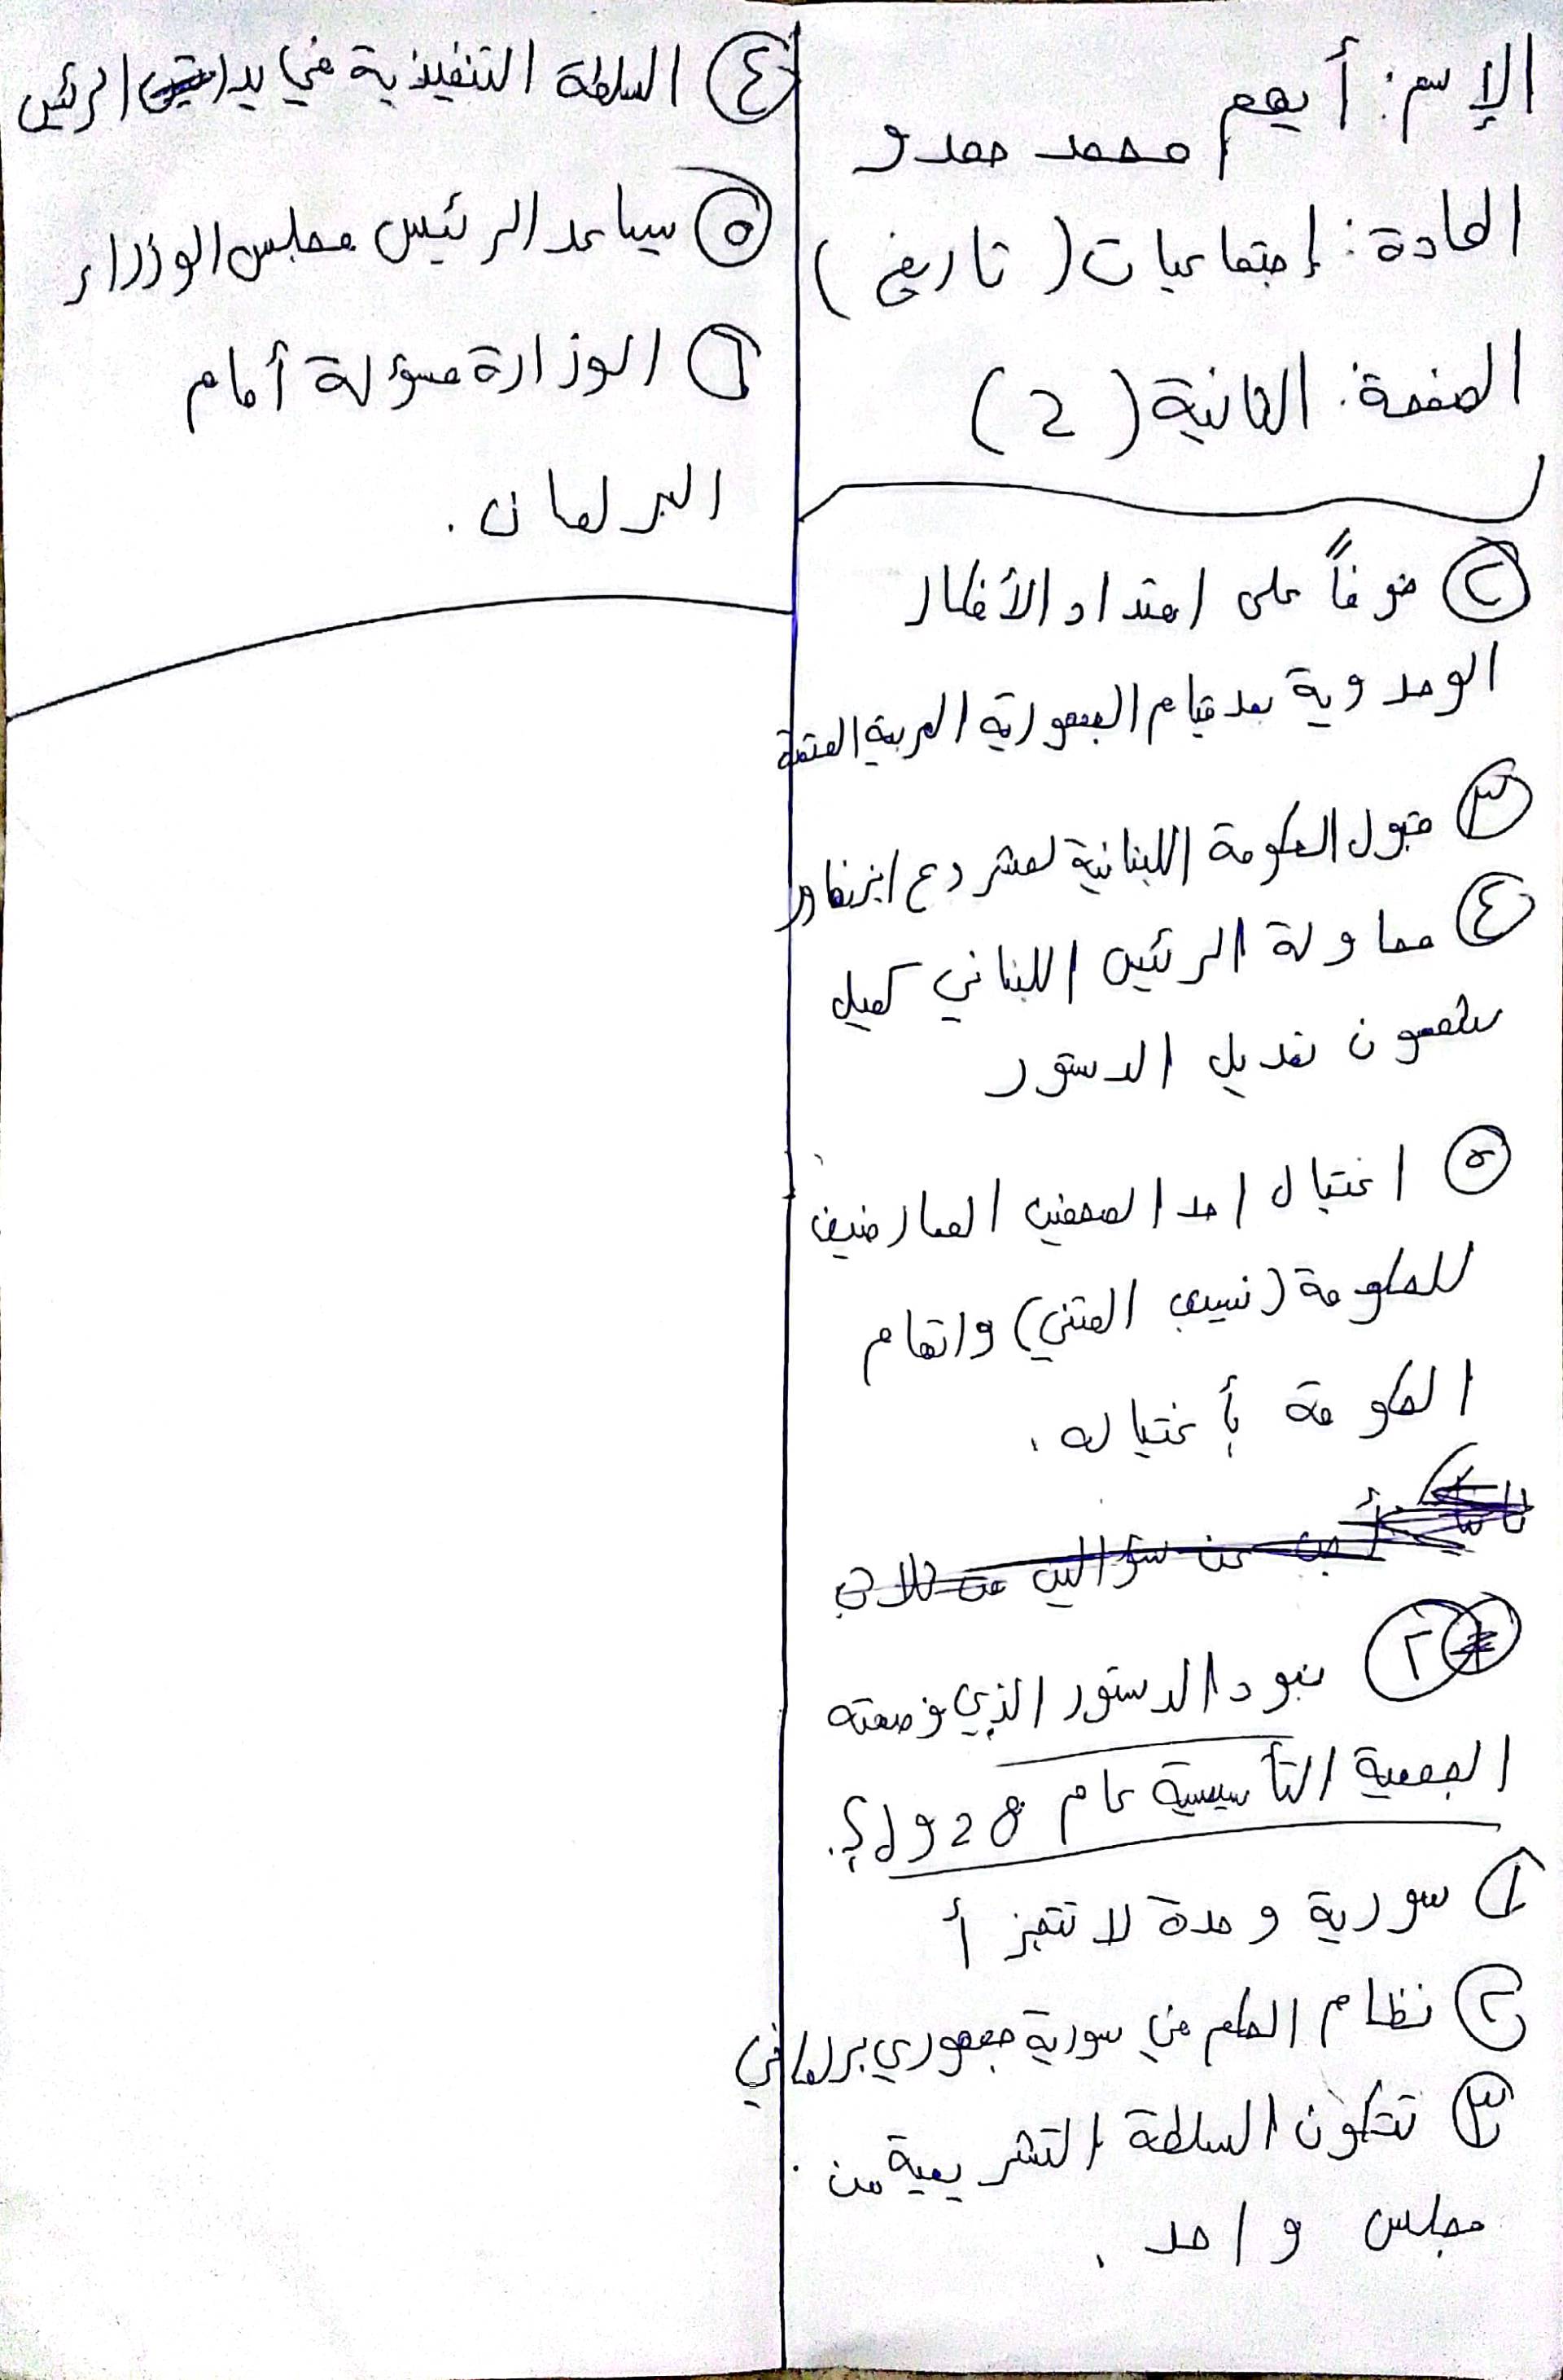 الإسم: أيهم
محمد حمدو
المادة: إجتماعيات (تاريخ)
الصفحة: الثانية (2)
② خوفاً على امتداد الأفكار
الوحدوية بعد قيام الجمهورية العربية المتحدة
③ قبول الحكومة اللبنانية لمشروع ايزنهاور
④ محاولة الرئيس اللبناني كميل
شمعون تعديل الدستور
⑤ اغتيال احد الصحفين المعارضين
للحكومة (نسيب المتني) واتهام
الحكومة بأغتياله.
أجب عن سؤالين من ثلاث
② بنود الدستور الذي وضعته
الجمعية التأسيسية عام 1928؟.
① سورية وحدة لا تتجزأ
② نظام الحكم في سورية جمهوري برلماني
③ تتكون السلطة التشريعية من
مجلس واحد.
④ السلطة التنفيذية في يد الرئيس
⑤ يساعد الرئيس مجلس الوزراء
⑥ الوزارة مسؤلة أمام
البرلمان.